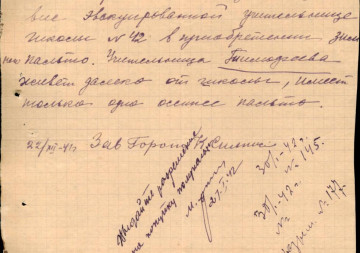 вие эвакуированной учительнице
школы № 42 в приобретении зим
него пальто. Учительница Тимофеева
живет далеко от школы, имеет
только одно осеннее пальто.
22/XII-41г. Зав Гороно
Выдайте разрешение
на покупку полупальто
27.I.42
30/I-42г.
№ 145.
30/I-42г.
№ 177